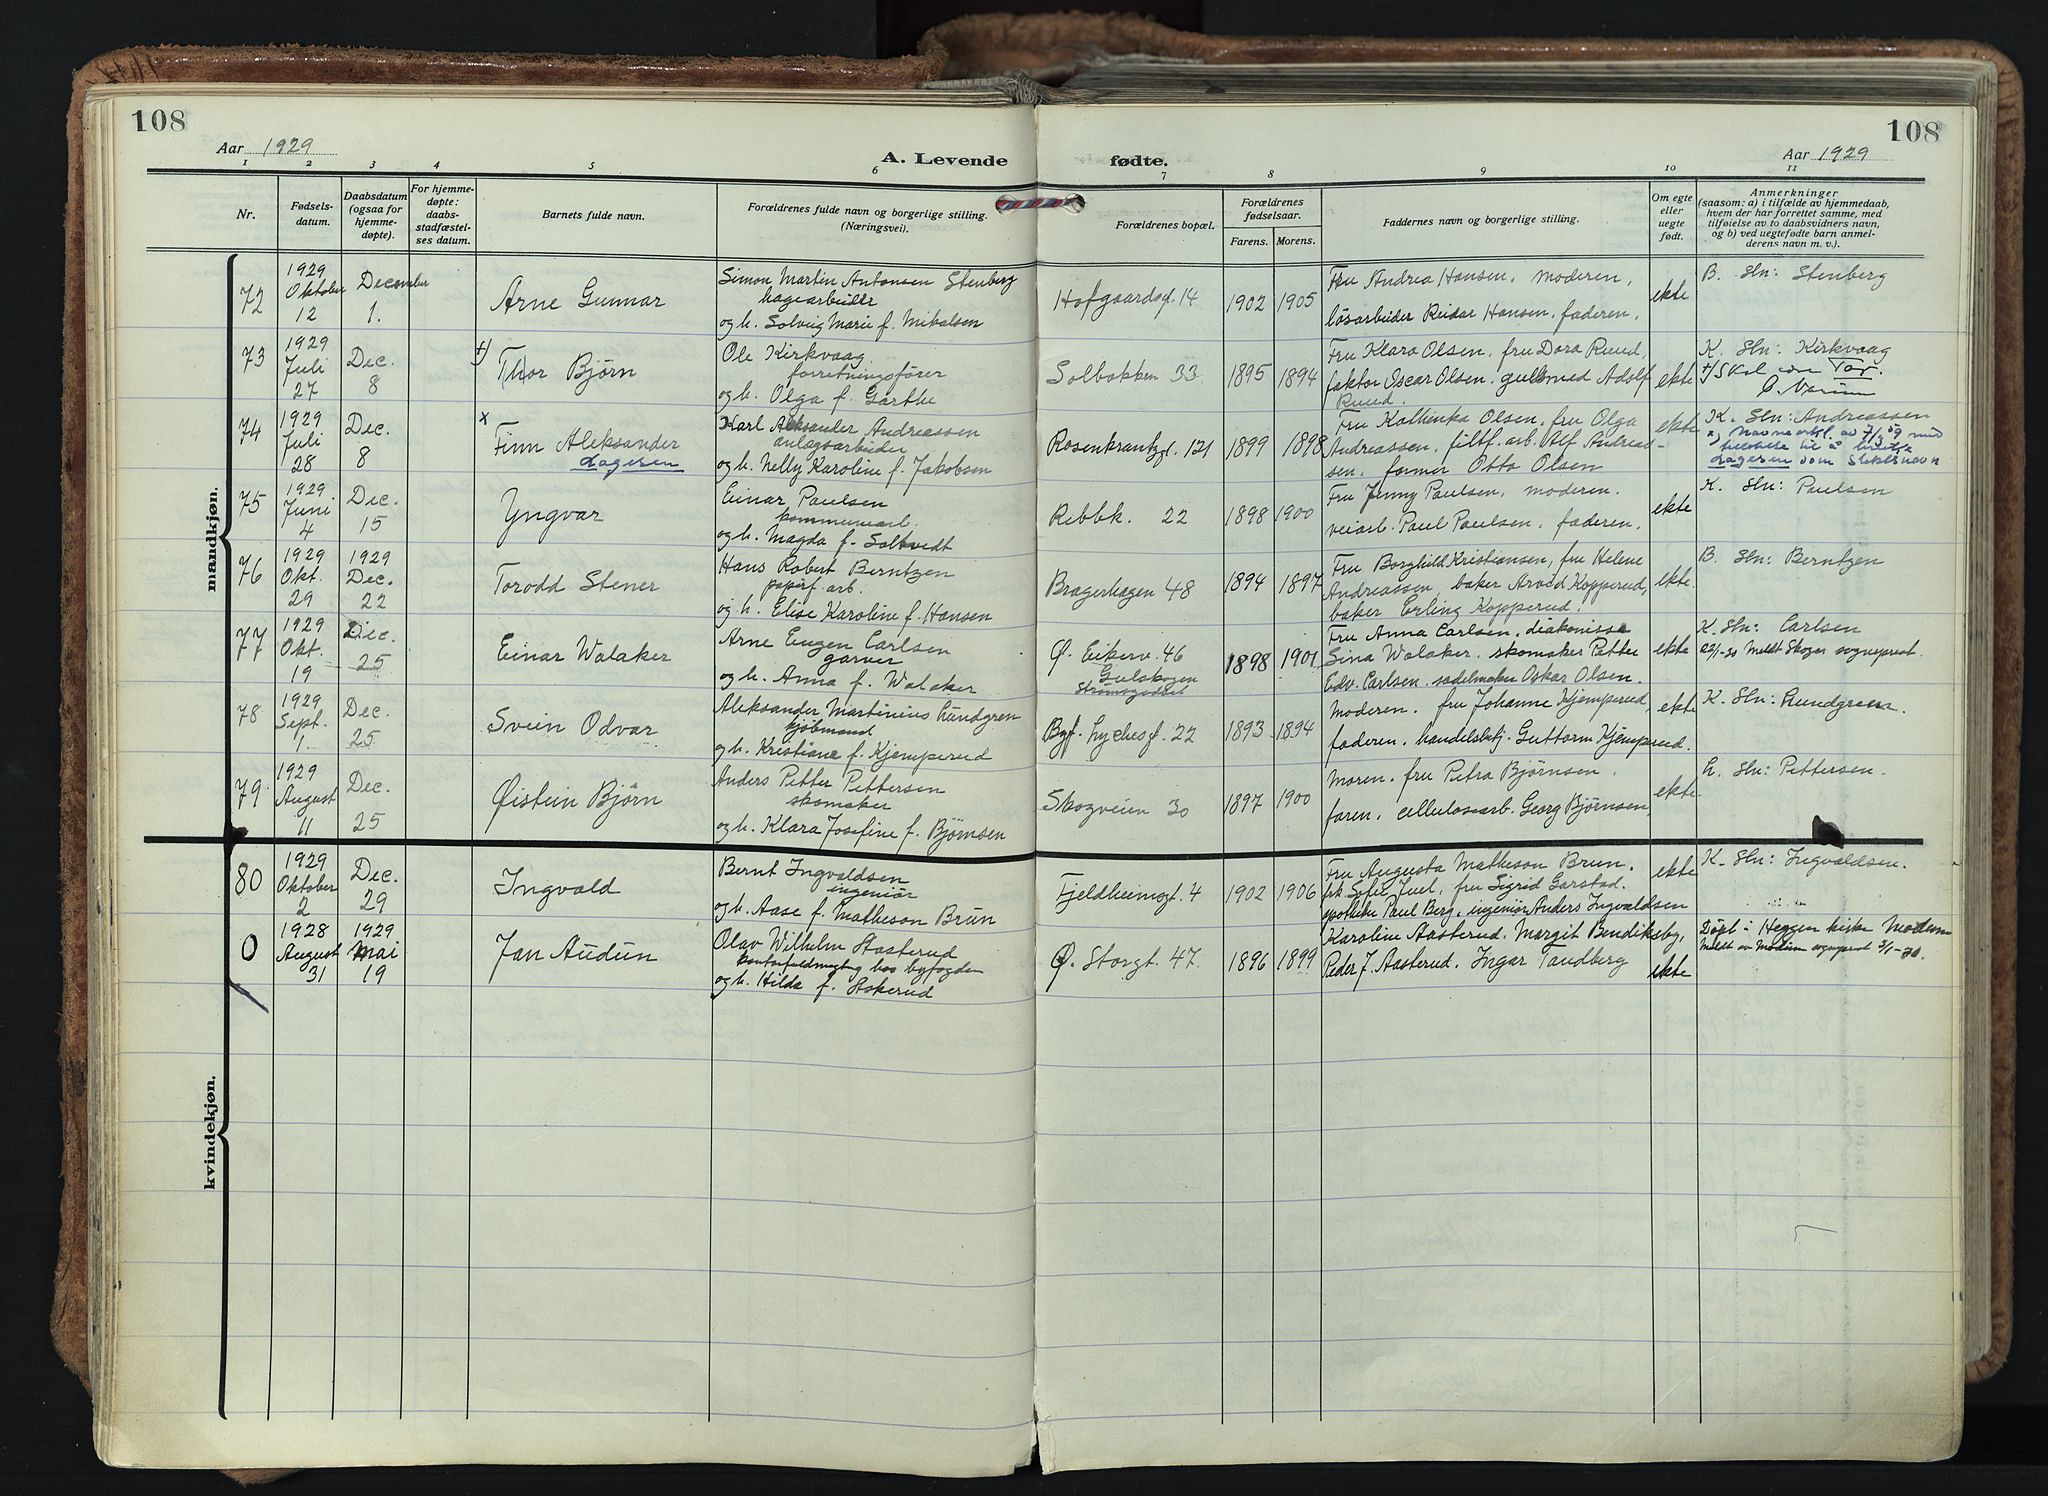 108
108
Aar 1929
A. Levende fødte.
Aar 1929
1 2 3 4 5 6 7 8 9 10 11
Nr.
Fødselsdatum.
Daabsdatum (ogsaa for hjemmedøpte).
For hjemmedøpte: daabsstadfæstelses datum.
Barnets fulde navn.
Forældrenes fulde navn og borgerlige stilling. (Næringsvei).
Forældrenes bopæl.
Forældrenes fødselsaar.
Farens. Morens.
Faddernes navn og borgerlige stilling.
Om egte eller uegte født.
Anmerkninger
(saasom: a) i tilfælde av hjemmedaab,
hvem der har forrettet samme, med
tilføielse av to daabsvidners navn,
og b) ved uegtefødte barn anmelderens navn m. v.).
mandkjøn.
72 1929 Oktober 12 December 1. Arne Gunnar
Simon Martin Antonsen Stenberg
hagearbeider
og h. Solveig Marie f. Mikalsen
Hofgaardsgt. 14 1902 1905
Fru Andrea Hansen, moderen,
løsarbeider Reidar Hansen, faderen.
ekte
B. Stn: Stenberg
73 1929 Juli 27 Dec. 8 +) Thor Bjørn
Ole Kirkvaag
forretningsfører
og h. Olga f. Garthe
Solbakken 33 1895 1894
Fru Klara Olsen, fru Dora Ruud,
faktor Oscar Olsen, gullsmed Adolf
Ruud.
ekte
K. Stn: Kirkvaag
+) Skal være Tor.
74 1929 Juli 28 Dec. 8 x Finn Aleksander
Lagesen
Karl Aleksander Andreassen
anlagsarbeider
og h. Nelly Karoline f. Jakobsen
Rosenkrantzgt. 121 1899 1898
Fru Kathinka Olsen, fru Olga
Andreassen, filtf. arb. Alf Andreassen,
former Otto Olsen
ekte
K. Stn: Andreassen
Lagesen som slektsnavn
75 1929 Juni 4 Dec. 15 Yngvar
Einar Paulsen
kommunearb.
og h. Magda f. Soltvedt
Rebbk. 22 1898 1900
Fru Jenny Paulsen, moderen.
veiarb. Paul Paulsen, faderen.
ekte
K. Stn: Paulsen
76 1929 Okt. 29 1929 Dec. 22 Torodd Stener
Hans Robert Berntzen
papirf. arb.
og h. Elise Karoline f. Hansen
Bragerhagen 48 1894 1897
Fru Borghild Kristiansen, fru Helene
Andreassen, baker Arvid Kopperud,
baker Erling Kopperud.
ekte
B. Stn: Berntzen
77 1929 Okt. 19 Dec. 25 Einar Walaker
Arne Eugen Carlsen
garver
og h. Anna f. Walaker
Ø. Eikerv. 46
Gulskogen
Strømsgodset
1898 1901
Fru Anna Carlsen, diakonisse
Sina Walaker, skomaker Petter
Edv. Carlsen, sadelmaker Oskar Olsen.
ekte
K. Stn: Carlsen
22/1-30 Meldt Skoger sogneprest.
78 1929 Sept. 1. Dec. 25 Svein Odvar
Aleksander Martinius Lundgren
kjøbmand
og h. Kristiane f. Kjemperud
Byf. Lychesgt. 22 1893 1894
Moderen. fru Johanne Kjemperud
faderen. handelsbtj. Guttorm Kjemperud.
ekte
K. Stn: Lundgreen.
79 1929 August 11 Dec. 25 Øistein Bjørn
Anders Petter Pettersen
skomaker
og h. Klara Josefine f. Bjørnsen
Skogveien 30 1897 1900
Moren. fru Petra Bjørnsen.
faren. cellulosearb. Georg Bjørnsen.
ekte
L. Stn: Pettersen.
80 1929 Oktober 2 Dec. 29 Ingvald
Bernt Ingvaldsen
ingeniør
og h. Aase f. Matheson Brun
Fjeldheimsgt. 4 1902 1906
Fru Augusta Matheson Brun.
frk Sofie Juel, fru Sigrid Garstad.
apotheker Paul Berg, ingeniør Anders Ingvaldsen
ekte
K. Stn: Ingvaldsen.
0 1928 August 31 1929 Mai 19 Jan Audun
Olav Wilhelm Aasterud
kontorfuldmægtig hos byfogden
og h. Hilda f. Askerud
Ø. Storgt. 47. 1896 1899
Karoline Aasterud. Margit Bendiksby,
Peder J. Aasterud. Ingar Tandberg
ekte
Døpt i Heggen kirke Modum
Meldt av Modum sogneprest 3/1-30.
kvindekjøn.